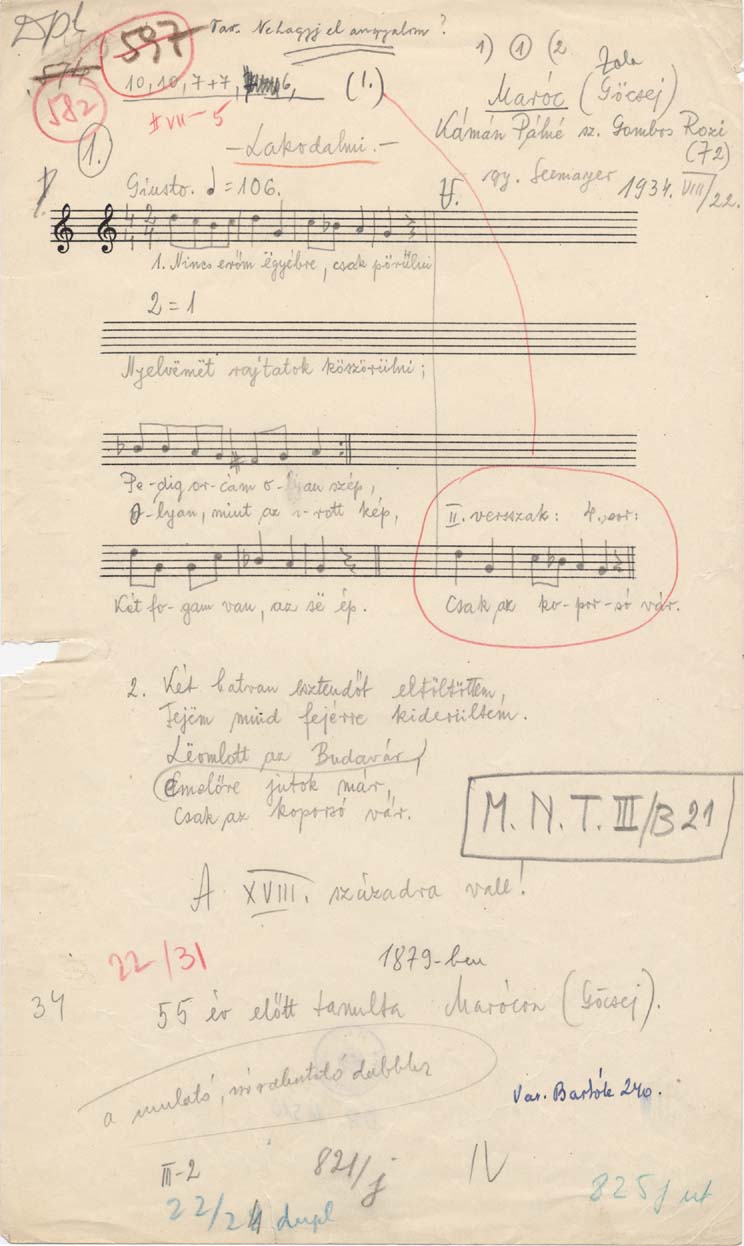 Dpl
Var. Ne hagyj el angyalom?
597
574
582
10, 10, 7+7, 6,
(1.)
1) 1 (2
Zala
Maróc (Göcsej)
Kámán Pálné sz. Gombos Rozi
(72)
II VII-5
1.
-Lakodalmi.-
gy. Seemayer 1934. VIII/22.
Giusto. ♩=106.
1. Nincs eröm ëgyébre, csak pörűlni
2=1
Nyelvëmët rajtatok köszörülni;
Pe-dig or-cám o-lyan szép,
O-lyan, mint az i-rott kép,
II. versszak: 4. sor:
Két fo-gam van, az së ép.
Csak az ko-por-só vár.
2. Két hatvan esztendőt eltöltöttem,
Fejëm mind fejérre kiderűltem.
Lëomlott az Budavár,
Emelőre jutok már,
Csak az koporsó vár.
M.N.T. III/B 21
A XVIII. századra vall!
22-/31
1879-ben
34
55 év előtt tanulta Marócon (Göcsej).
a mulató,
Var. Bartók 240.
III-2
821/j
IV
22/24 dupl
825 j ut